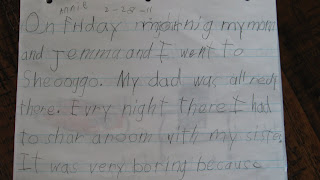 2-28-11
On Friday mornig my mom
and Jemma and I went to
Sheooggo. My dad was allredy
there. Evry night there I had
to shar a room with my sister.
It was very boring because